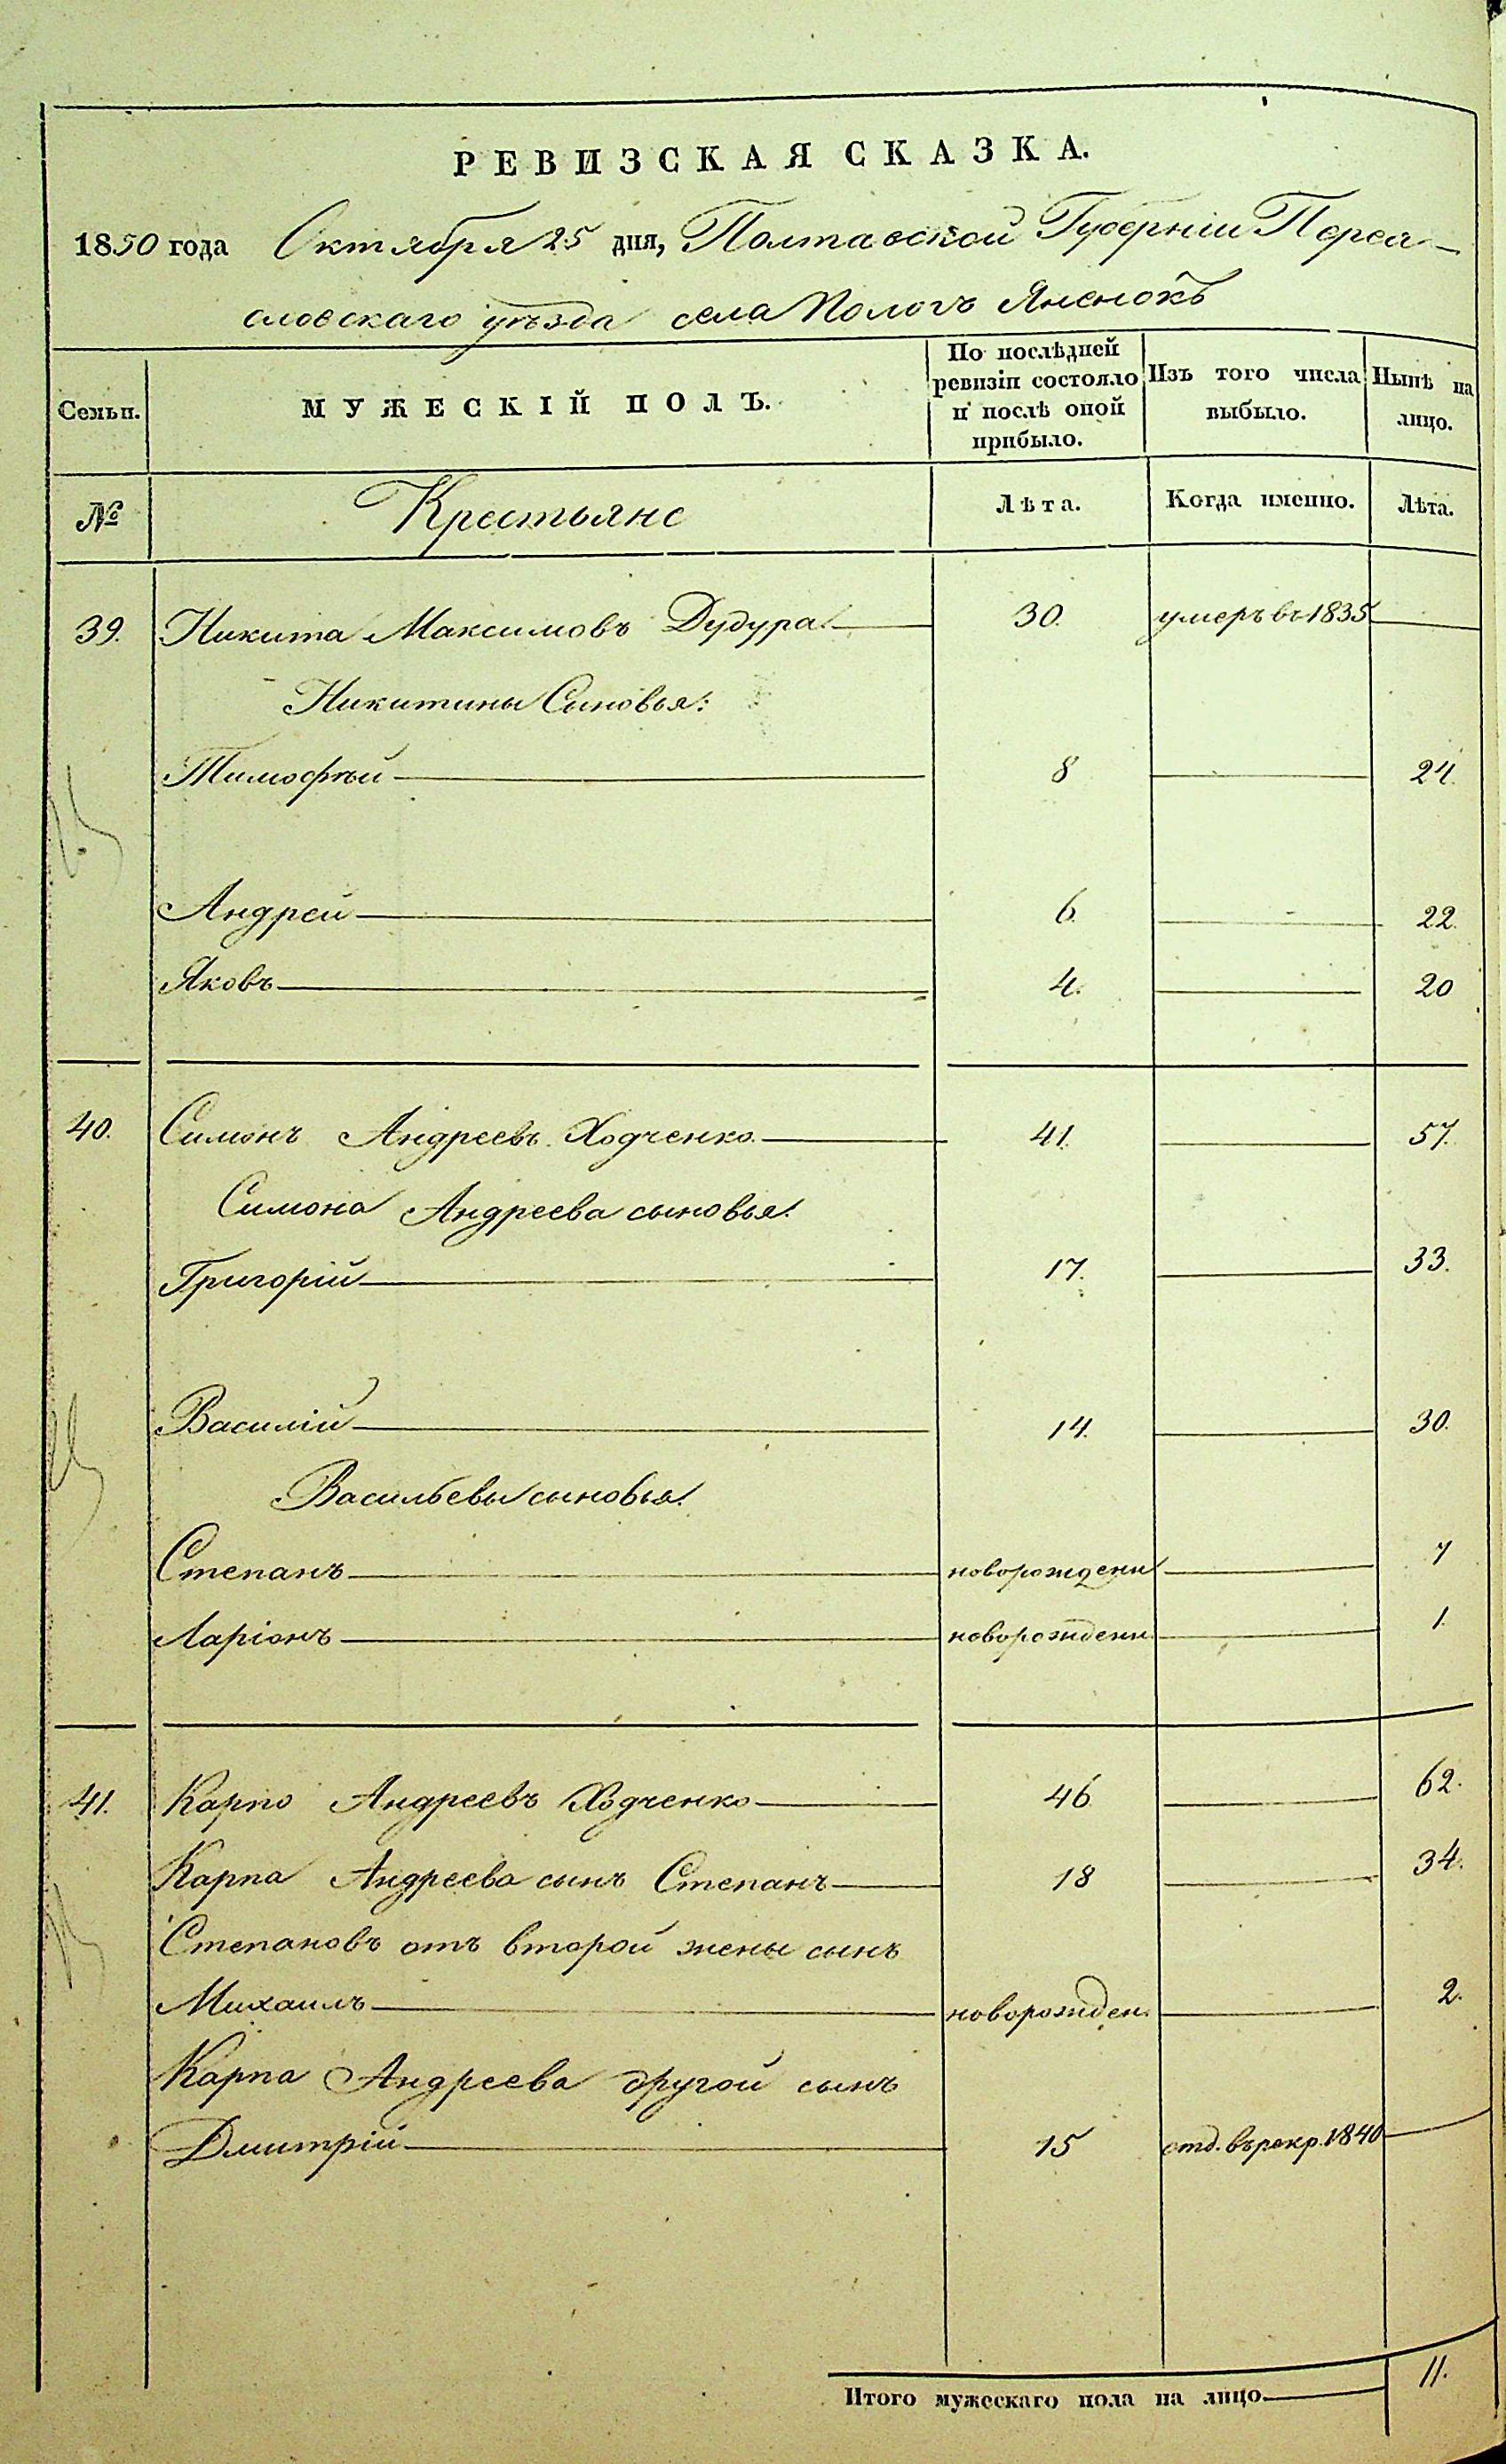 РЕВИЗСКАЯ СКАЗКА.
1850 года Октября 25 дня, Полтавской Губерніи Перея-
словскаго уѣзда села Пологъ Яненокъ
Семьи.
МУЖЕСКІЙ ПОЛЪ.
По послѣдней ревизіи состояло и послѣ оной прибыло.
Изъ того числа выбыло.
Нынѣ на лицо.
№ Крестьяне Лѣта. Когда именно. Лѣта.
39. Никита Максимовъ Дудура 30. умеръ въ 1835
Никитины Сыновья:
Тимофѣй 8 24.
Андрей 6. 22.
Яковъ 4. 20
40. Симонъ Андреевъ Ходченко 41. 57.
Симона Андреева сыновья:
Григорій 17. 33.
Василій 14. 30.
Васильевы сыновья:
Степанъ новорожденн 7
Ларіонъ новорожденн. 1.
41. Карпо Андреевъ Ходченко 46. 62.
Карпа Андреева сынъ Степанъ 18 34.
Степановъ отъ второй жены сынъ
Михаилъ новорожден. 2.
Карпа Андреева другой сынъ
Дмитрій 15 отд. въ рекр. 1840
Итого мужескаго пола на лицо 11.